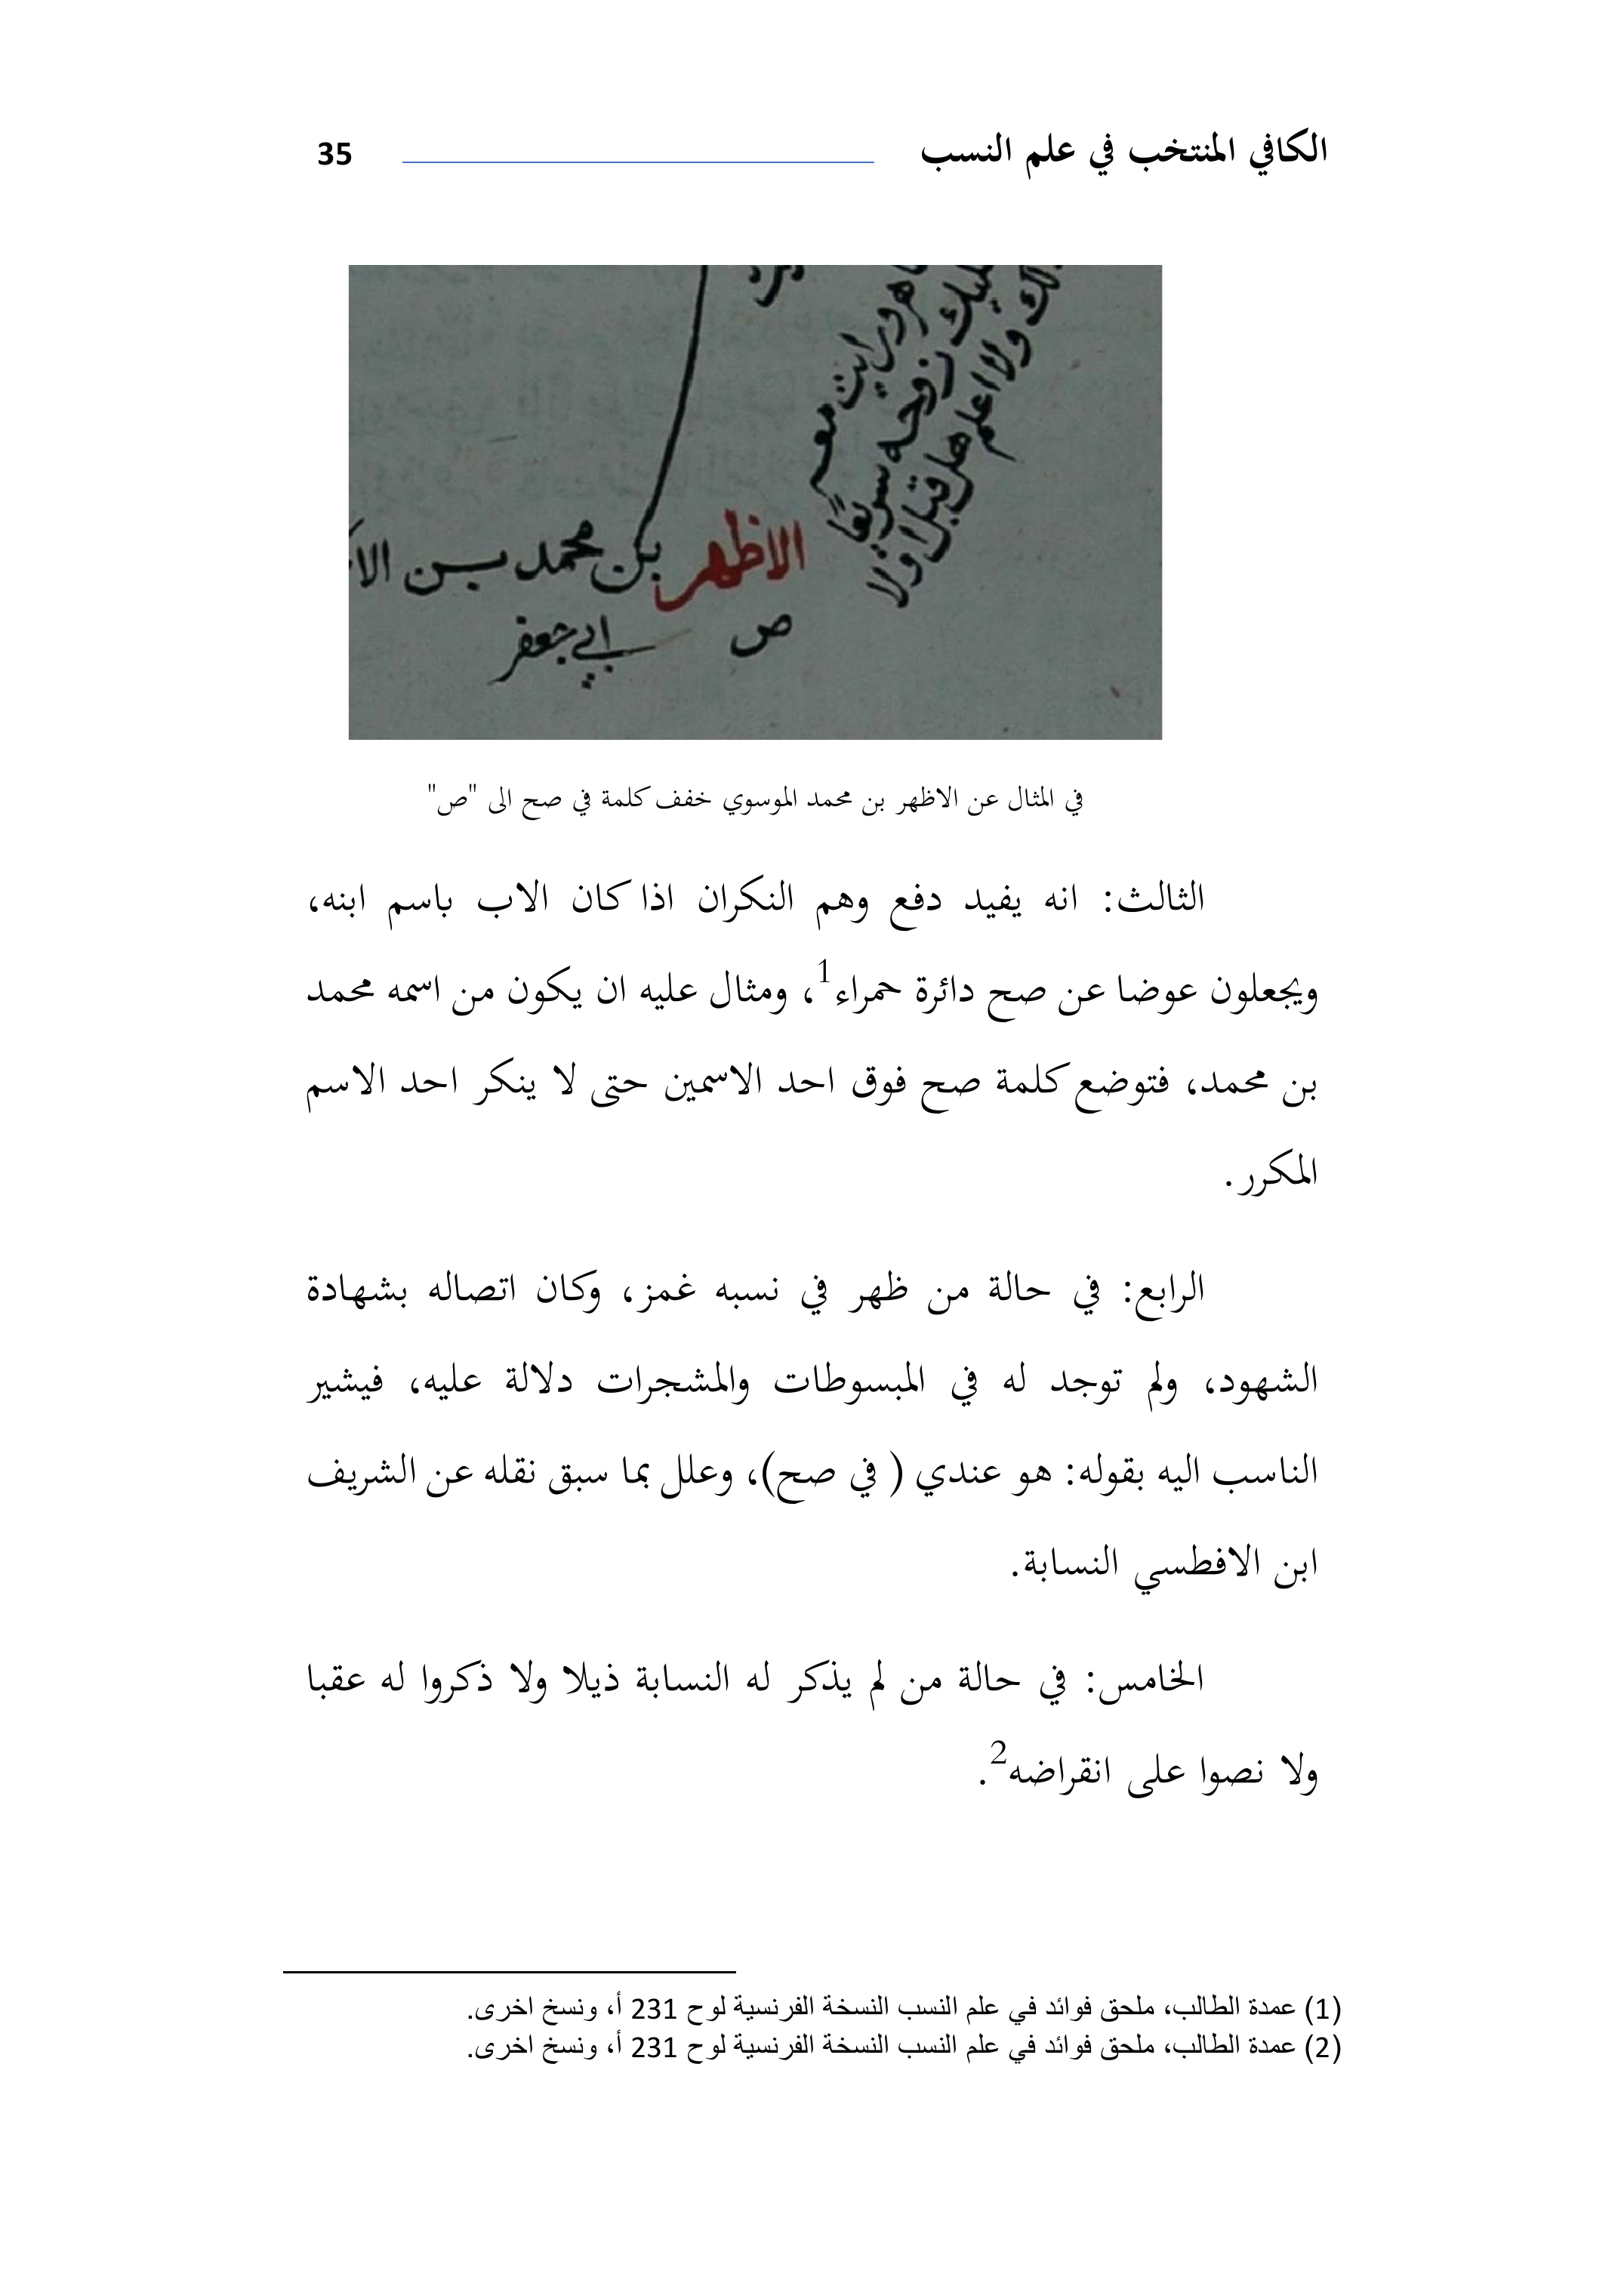 الكافي المنتخب في علم النسب 35
ورايت معه
زوجه سريعا
ولا اعلم
هل قبل او لا
الاظهر بن محمد بن
ص
ابي جعفر
في المثال عن الاظهر بن محمد الموسوي خفف كلمة في صح الى "ص"
الثالث: انه يفيد دفع وهم النكران اذا كان الاب باسم ابنه،
ويجعلون عوضا عن صح دائرة حمراء1، ومثال عليه ان يكون من اسمه محمد
بن محمد، فتوضع كلمة صح فوق احد الاسمين حتى لا ينكر احد الاسم
المكرر.
الرابع: في حالة من ظهر في نسبه غمز، وكان اتصاله بشهادة
الشهود، ولم توجد له في المبسوطات والمشجرات دلالة عليه، فيشير
الناسب اليه بقوله: هو عندي ( في صح)، وعلل بما سبق نقله عن الشريف
ابن الافطسي النسابة.
الخامس: في حالة من لم يذكر له النسابة ذيلا ولا ذكروا له عقبا
ولا نصوا على انقراضه2.
(1) عمدة الطالب، ملحق فوائد في علم النسب النسخة الفرنسية لوح 231 أ، ونسخ اخرى.
(2) عمدة الطالب، ملحق فوائد في علم النسب النسخة الفرنسية لوح 231 أ، ونسخ اخرى.